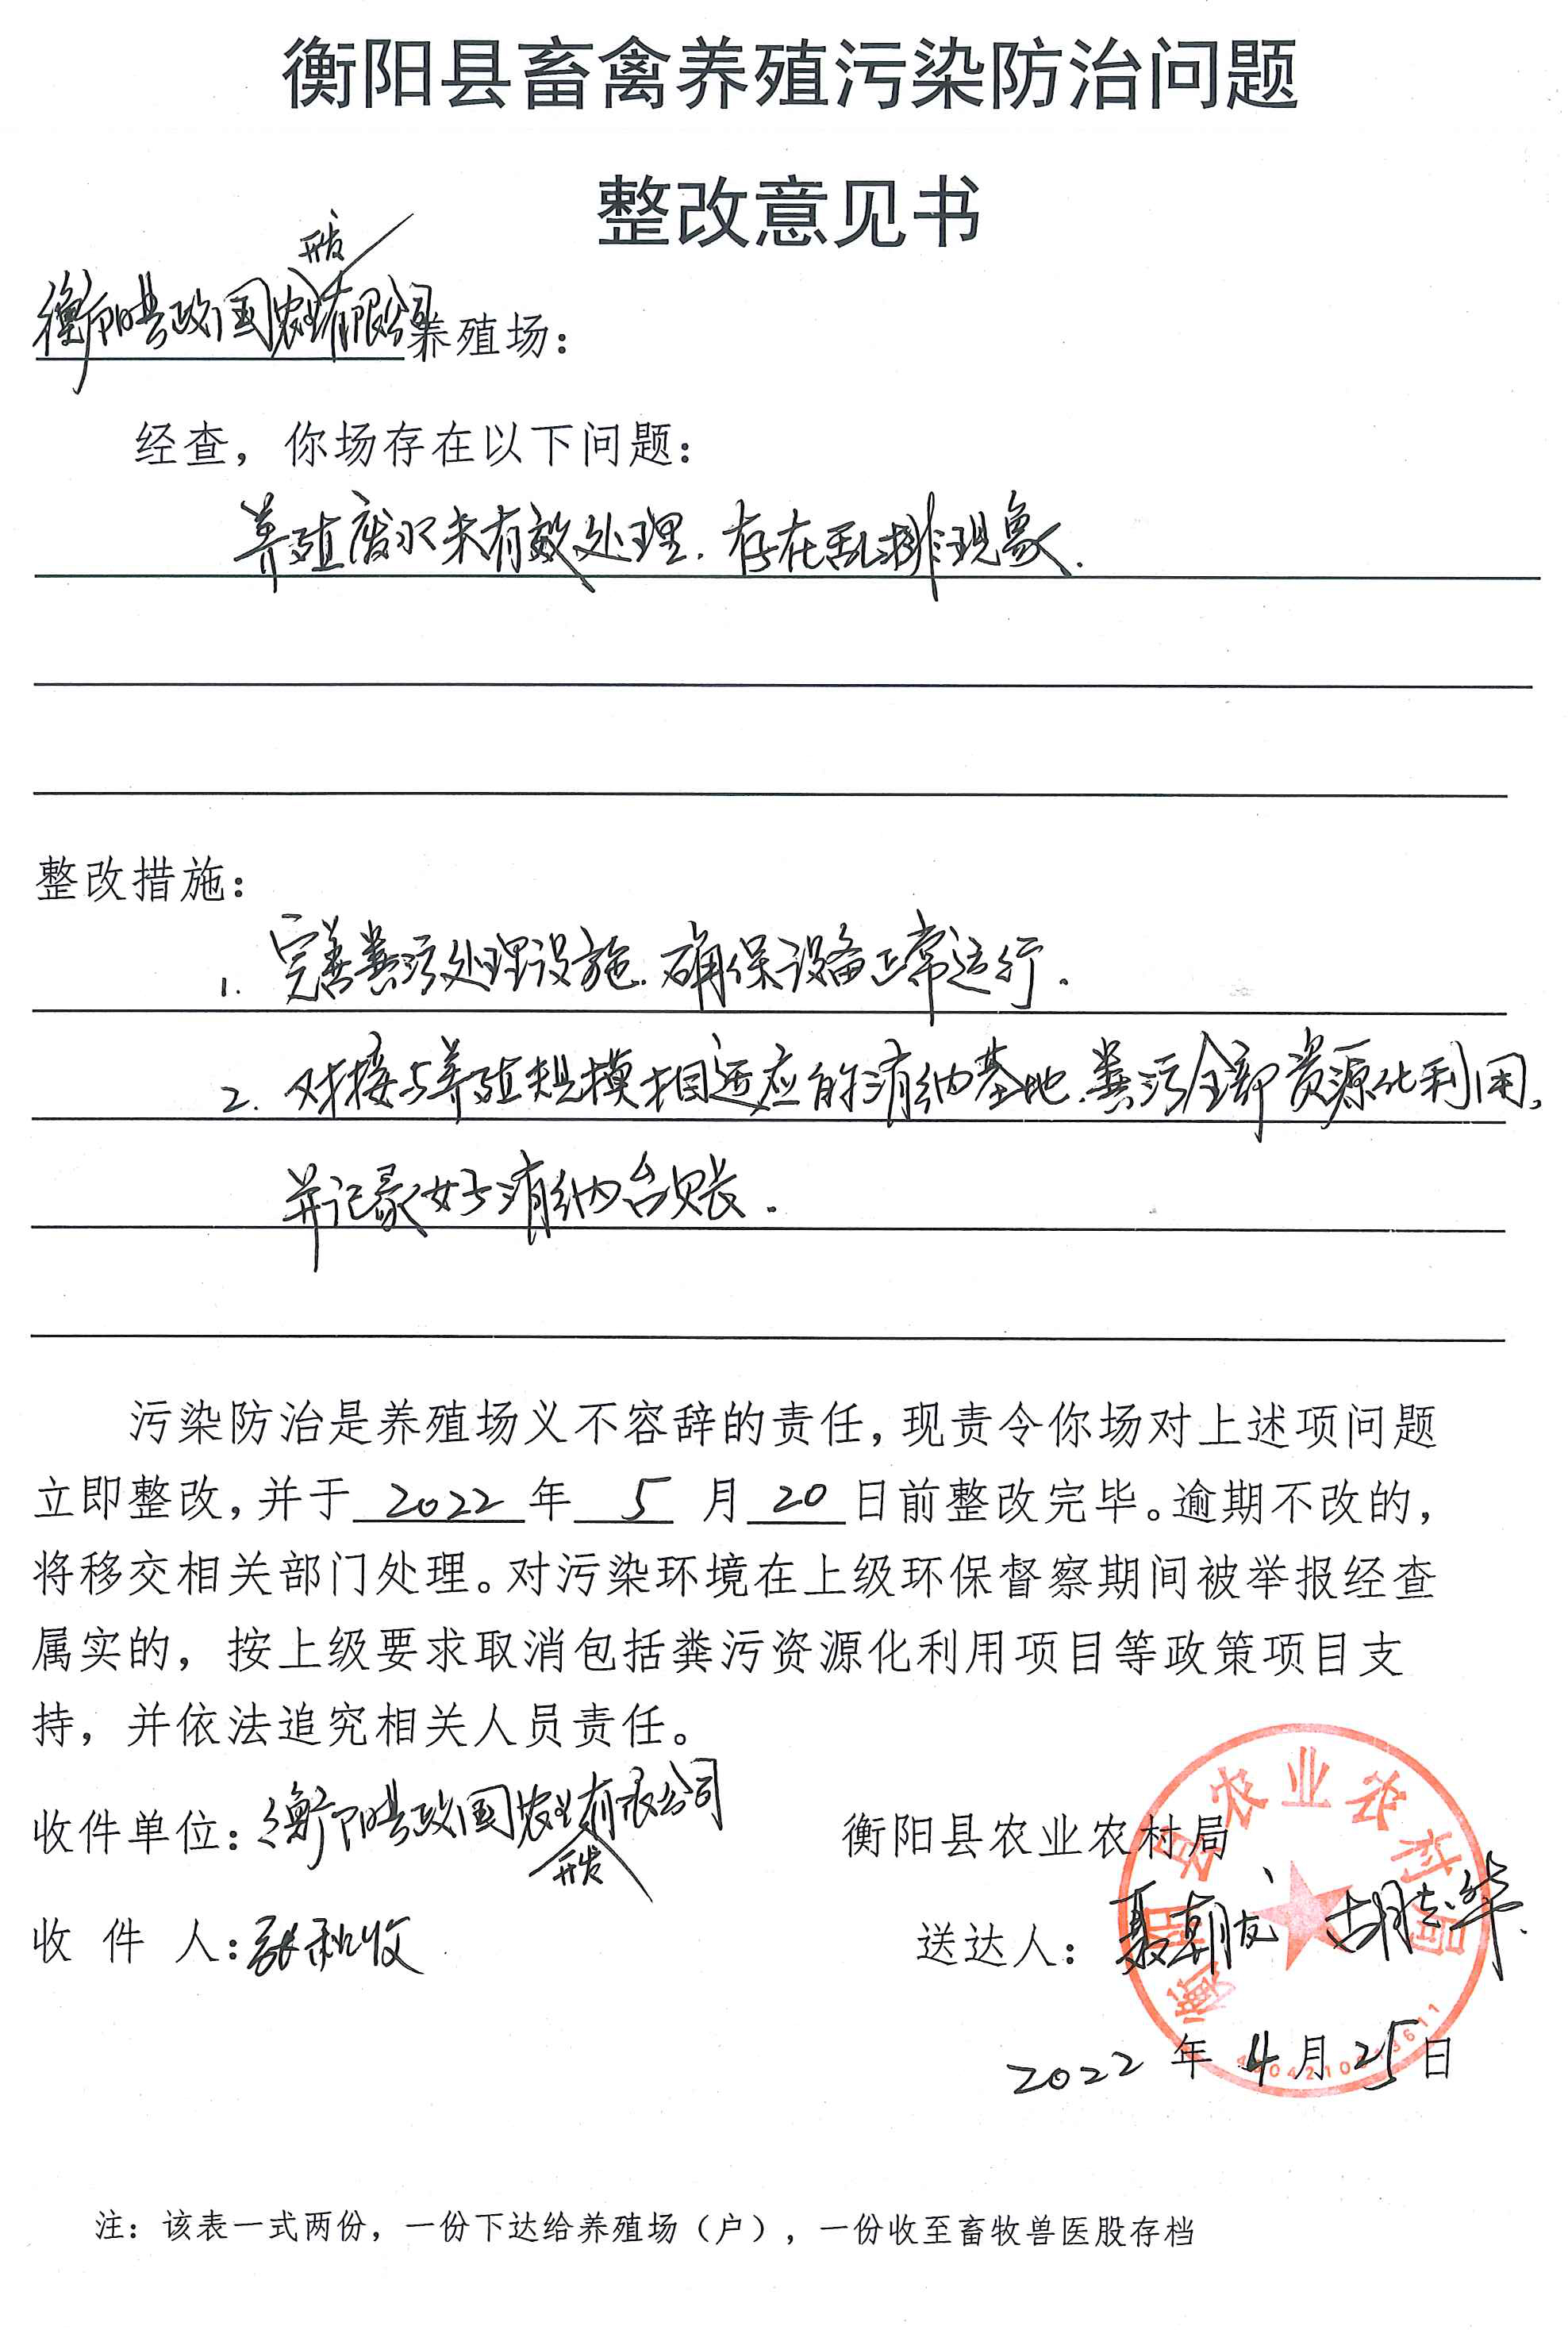 衡阳县畜禽养殖污染防治问题
整改意见书
开发
衡阳县政国农业有限公司养殖场：
经查，你场存在以下问题：
养殖废水未有效处理，存在乱排现象.
整改措施：
1. 完善粪污处理设施，确保设备正常运行.
2. 对接与养殖规模相适应的消纳基地，粪污全部资源化利用，
并记录好消纳台账.
污染防治是养殖场义不容辞的责任，现责令你场对上述项问题
立即整改，并于 2022 年 5 月 20 日前整改完毕。逾期不改的，
将移交相关部门处理。对污染环境在上级环保督察期间被举报经查
属实的，按上级要求取消包括粪污资源化利用项目等政策项目支
持，并依法追究相关人员责任。
收件单位：衡阳县政国农业有限公司
开发
衡阳县农业农村局
收 件 人：
送达人：聂朝友 胡志华
衡阳县农业农村局
2022 年 4 月 25 日
注：该表一式两份，一份下达给养殖场（户），一份收至畜牧兽医股存档